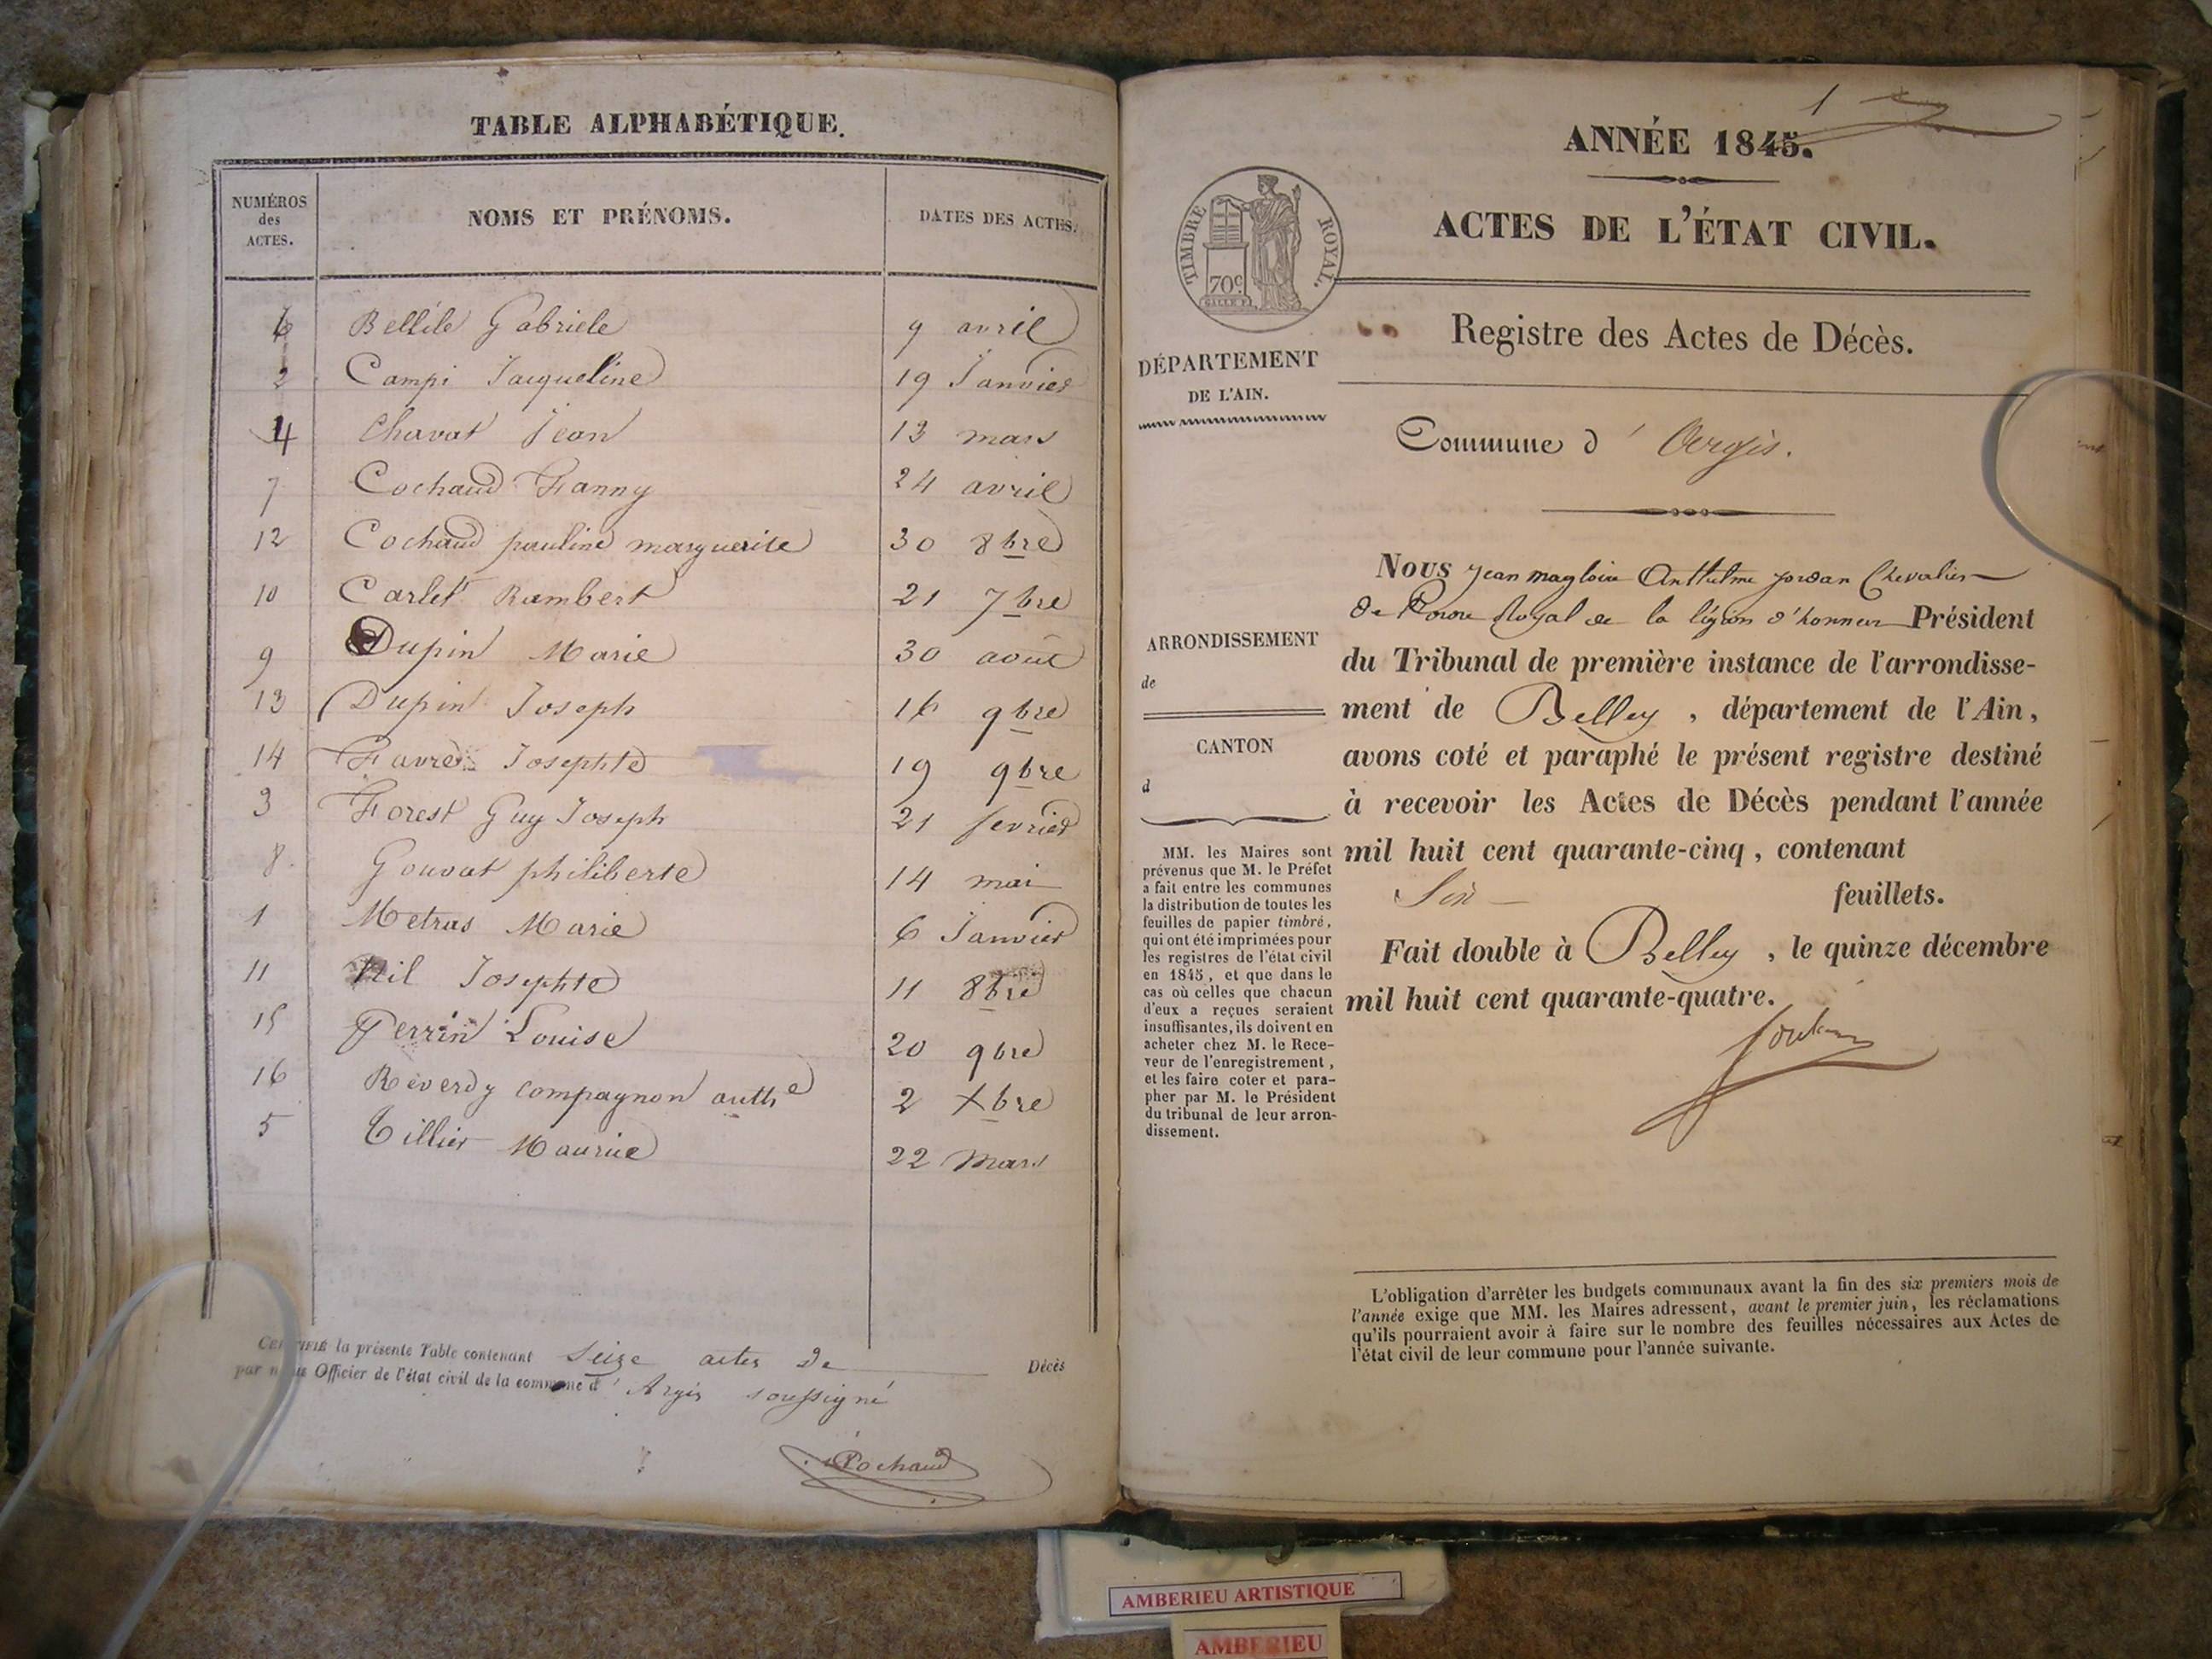 TABLE ALPHABÉTIQUE.
NUMÉROS des ACTES. NOMS ET PRÉNOMS. DATES DES ACTES.
6 Bellile Gabriele 9 avril
2 Campi Jacqueline 19 Janvier
4 Chavat Jean 13 mars
7 Cochaud Fanny 24 avril
12 Cochaud pauline marguerite 30 8bre
10 Carlet Rambert 21 7bre
9 Dupin Marie 30 août
13 Dupin Joseph 16 9bre
14 Favre Josephte 19 9bre
3 Forest Guy Joseph 21 fevrier
8 Gouvat philiberte 14 mai
1 Metras Marie 6 Janvier
11 Nil Josephte 11 8bre
15 Perrin Louise 20 9bre
16 Reverdy compagnon anthe 2 Xbre
5 Tillier Maurice 22 Mars
CERTIFIÉ la présente Table contenant Seize actes De Décès
par nous Officier de l'état civil de la commune d' Argis soussigné
Cochaud
1
ANNÉE 1845.
ACTES DE L'ÉTAT CIVIL.
TIMBRE ROYAL.
70c
Registre des Actes de Décès.
DÉPARTEMENT
DE L'AIN.
Commune d' Argis.
Nous Jean magloire Anthelme Jordan Chevalier
De l'ordre Royal de la légion d'honneur Président
du Tribunal de première instance de l'arrondisse-
ment de Belley, département de l'Ain,
avons coté et paraphé le présent registre destiné
à recevoir les Actes de Décès pendant l'année
mil huit cent quarante-cinq, contenant
Six feuillets.
Fait double à Belley, le quinze décembre
mil huit cent quarante-quatre.
Jordan
ARRONDISSEMENT
de
CANTON
d
MM. les Maires sont
prévenus que M. le Préfet
a fait entre les communes
la distribution de toutes les
feuilles de papier timbré,
qui ont été imprimées pour
les registres de l'état civil
en 1845, et que dans le
cas où celles que chacun
d'eux a reçues seraient
insuffisantes, ils doivent en
acheter chez M. le Rece-
veur de l'enregistrement,
et les faire coter et para-
pher par M. le Président
du tribunal de leur arron-
dissement.
L'obligation d'arrêter les budgets communaux avant la fin des six premiers mois de
l'année exige que MM. les Maires adressent, avant le premier juin, les réclamations
qu'ils pourraient avoir à faire sur le nombre des feuilles nécessaires aux Actes de
l'état civil de leur commune pour l'année suivante.
AMBERIEU ARTISTIQUE
AMBERIEU